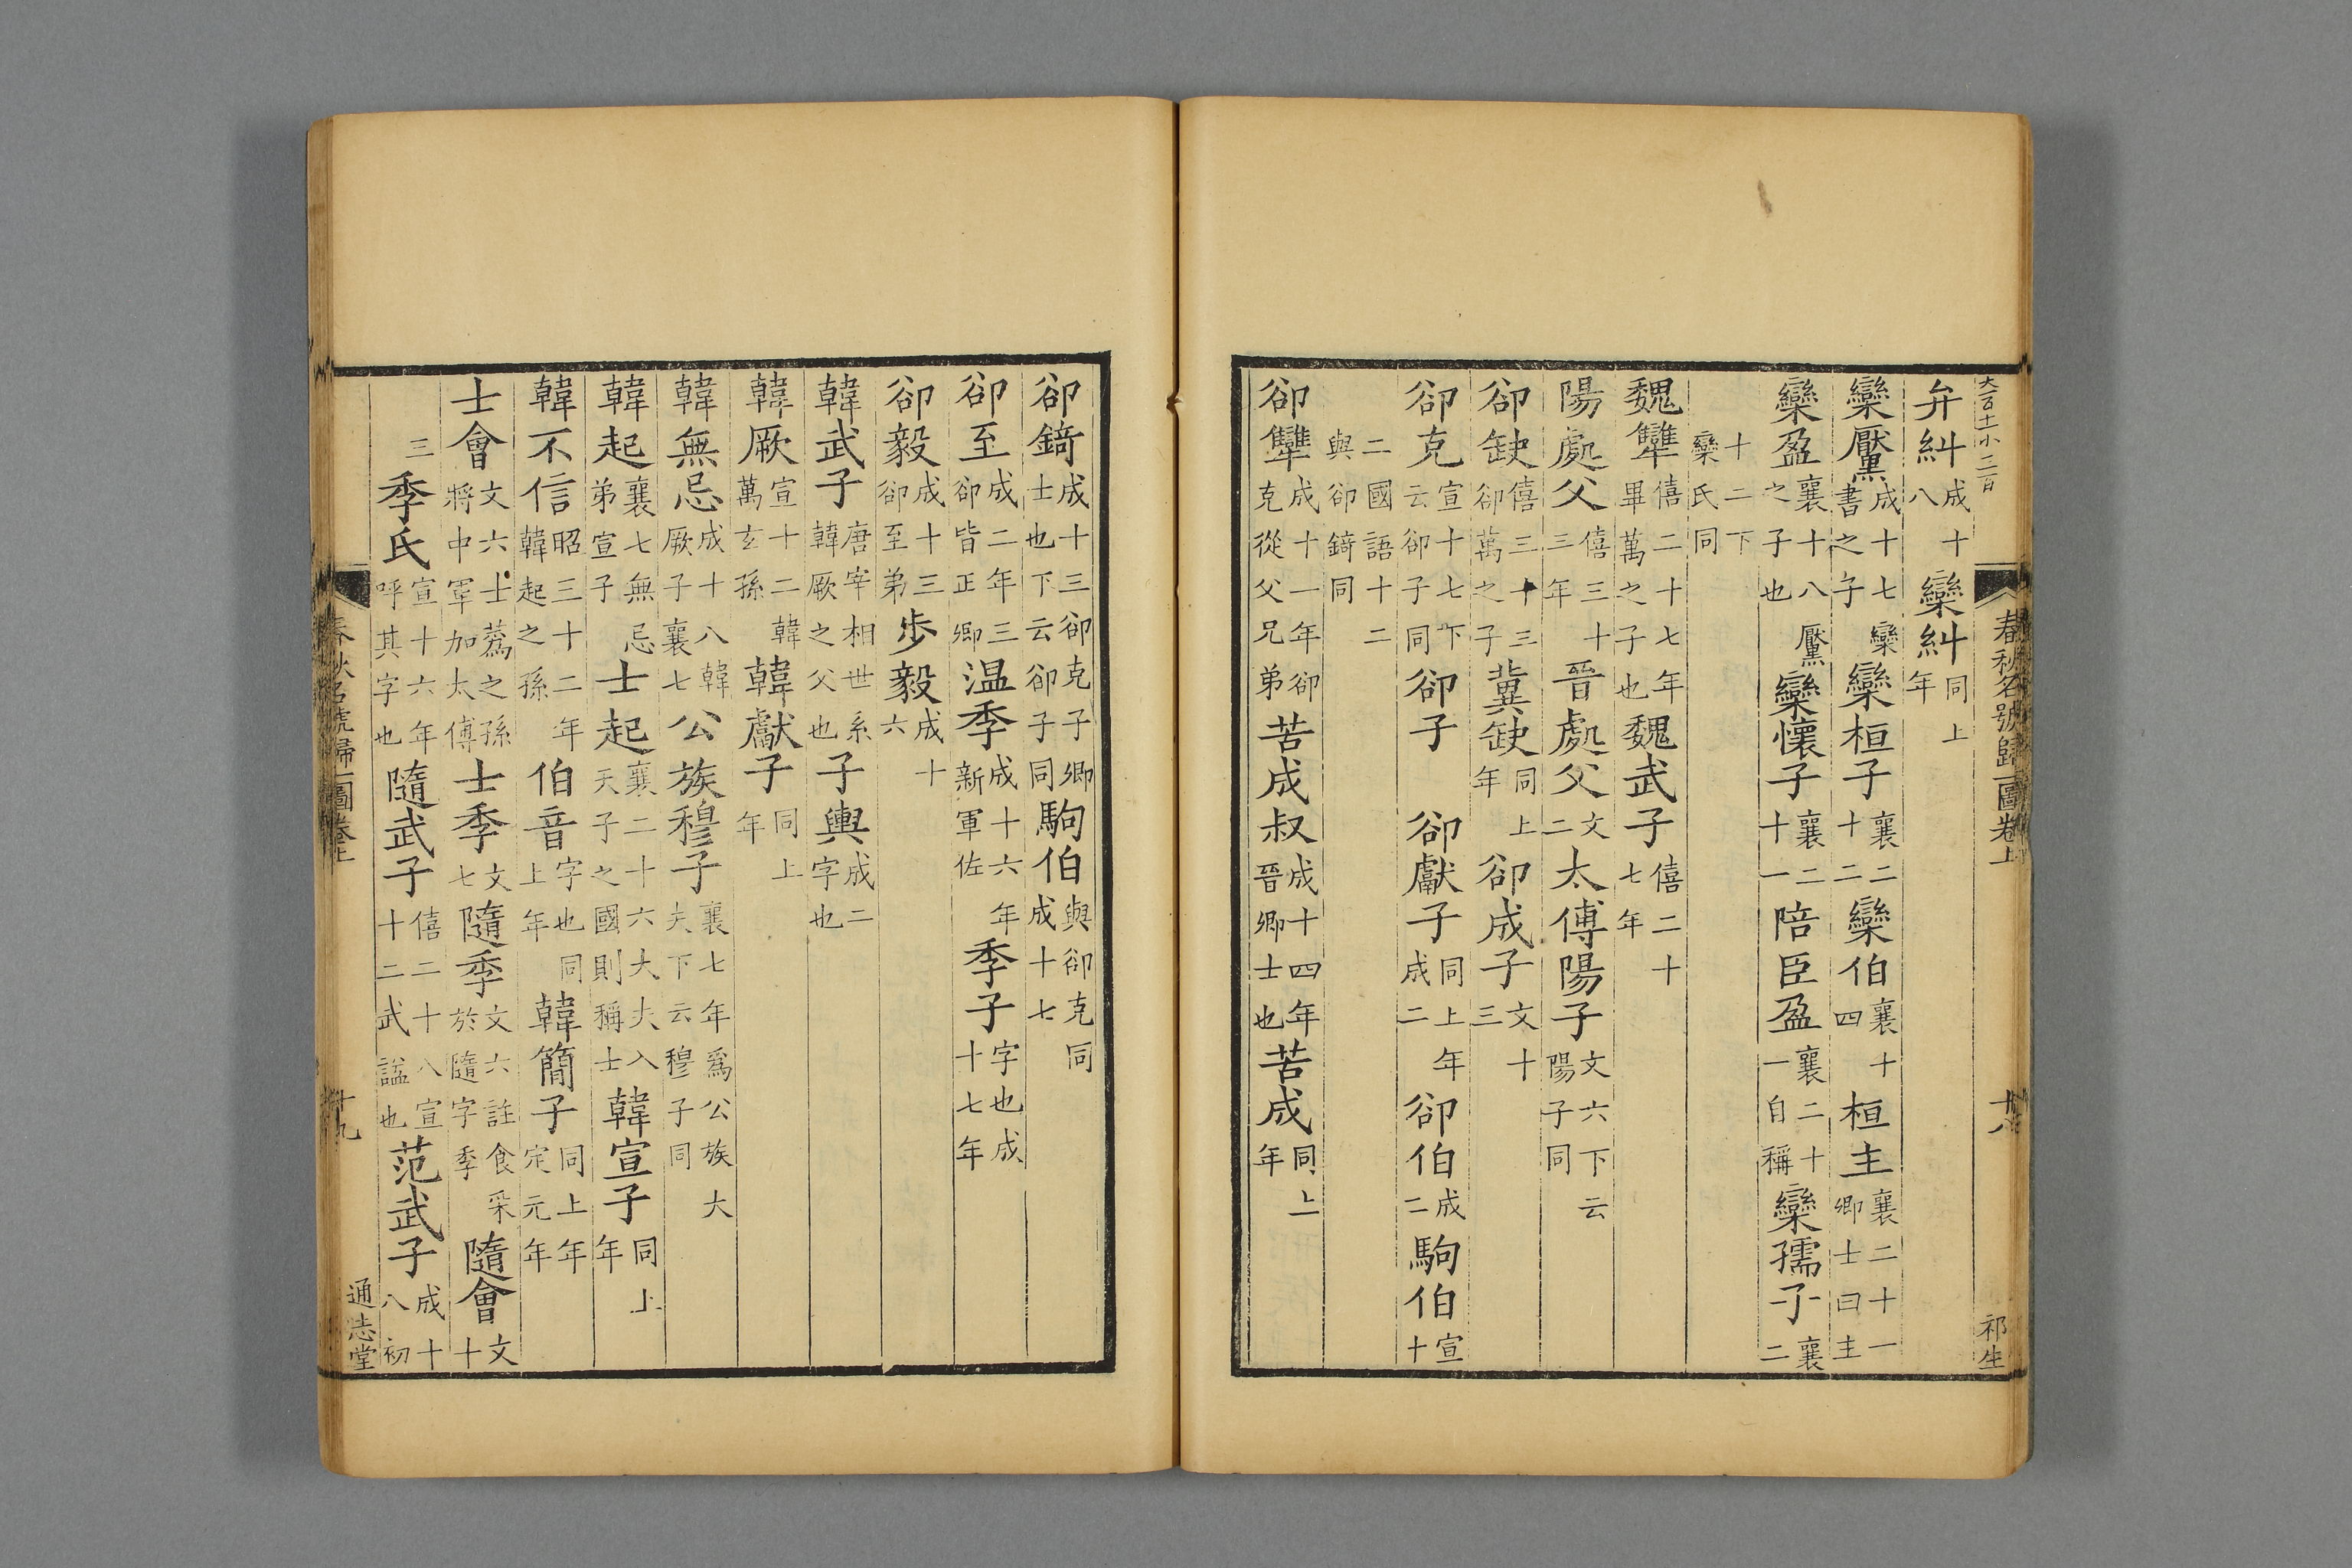 大百十小二百
春秋名號歸一圖卷上 十八 祁生
弁糾成十八欒糾同上年
欒黶成十七欒書之子欒桓子襄二十二欒伯襄十四桓主襄二十一卿士曰主
欒盈襄十八黶之子也欒懷子襄二十一陪臣盈襄二十一自稱欒孺子襄二
十二下欒氏同
魏犨僖二十七年畢萬之子也魏武子僖二十七年
陽處父僖三十三年晉處父文二太傅陽子文六下云陽子同
郤缺僖三十三郤萬之子冀缺同上年郤成子文十三
郤克宣十七下云郤子同郤子 郤獻子同上年成二郤伯成二駒伯宣十
二國語十二與郤錡同
郤犨成十一年郤克從父兄弟苦成叔成十四年晉卿士也苦成同上年
郤錡成十三郤克子卿士也下云郤子同駒伯與郤克同成十七
郤至成二年三郤皆正卿温季成十六年新軍佐季子字也成十七年
郤毅成十三郤至弟步毅成十六
韓武子唐宰相世系韓厥之父也子輿成二字也
韓厥宣十二韓萬玄孫韓獻子同上年
韓無忌成十八韓厥子襄七公族穆子襄七年爲公族大夫下云穆子同
韓起襄七無忌弟宣子士起襄二十六大夫入天子之國則稱士韓宣子同上年
韓不信昭三十二年韓起之孫伯音字也同上年韓簡子同上年定元年
士會文六士蒍之孫將中軍加太傅士季文七隨季文六註食采於隨字季隨會文十
三季氏宣十六年呼其字也隨武子僖二十八宣十二武諡也范武子成十八初
春秋名號歸一圖卷上 十九 通志堂